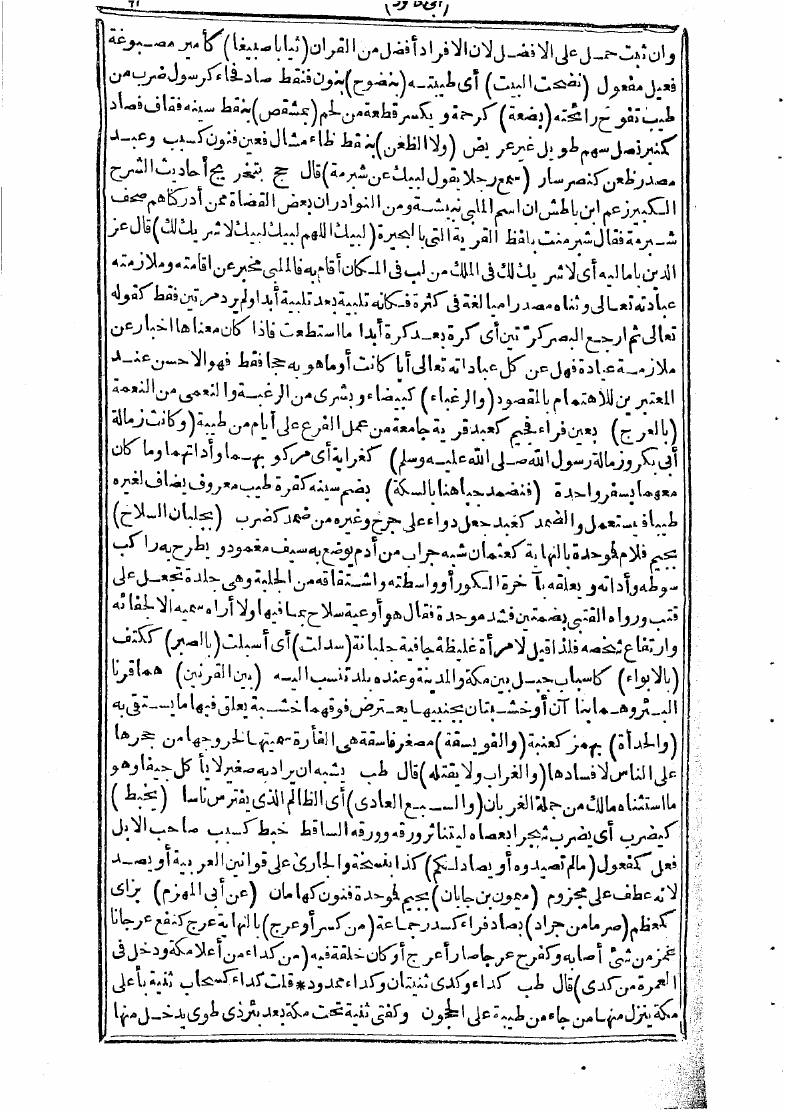 (أبي داود)
٩١
وان ثبت حمل على الافضل لان الافراد أفضل من القران (ثيابا صبيغا) كأمير مصبوغة
فعيل مفعول (نضحت البيت) أى طيبته (بنضوح) بنون فنقط صاد فحاء كرسول ضرب من
طيب تفوح رائحته (بضعة) كرحمة ويكسر قطعة من لحم (بمشقص) بنقط سينه فقاف فصاد
كمنبر نصل سهم طويل غير عريض (ولا الظعن) بنقط ظاء مشال فعين فنون كسبب وعبد
مصدر ظعن كنصر سار (سمع رجلا يقول لبيك عن شبرمة) قال حج بتخريج أحاديث الشرح
الكبير زعم ابن باطش ان اسم الملبى نبيشة ومن النوادر ان بعض القضاة ممن أدركناهم صحف
شبرمة فقال شبرمنت بلفظ القرية التى بالجيزة (لبيك اللهم لبيك لبيك لا شريك لك) قال عز
الدين باماليه أى لا شريك لك فى الملك من لب فى المكان أقام به فالملبى مخبر عن اقامته وملازمته
عبادته تعالى وثناه مصدرا مبالغة فى كثرة فكانه تلبية بعد تلبية أبدا ولم يرد مرتين فقط كقوله
تعالى ثم ارجع البصر كرتين أى كرة بعد كرة أبدا ما استطعت فاذا كان معناها اخبار عن
ملازمة عبادة فهل عن كل عباداته تعالى أيا كانت أو ما هو به حجا فقط فهو الاحسن عند
المعتبرين للاهتمام بالمقصود (والرغباء) كبيضاء وبشرى من الرغبة والنعمى من النعمة
(بالعرج) بعين فراء فجيم كعبد قرية جامعة من عمل الفرع على أيام من طيبة (وكانت زمالة
أبى بكر وزمالة رسول الله صلى الله عليه وسلم) كغراية أى مركوبهما وأداتهما وما كان
معهما بسفر واحدة (فنضمد جباهنا بالسكة) بضم سينه كقرة طيب معروف يضاف لغيره
طيبا فيستعمل والضمد كعبد جعل دواء على جرح وغيره من ضمد كضرب (بجلبان السلاح)
بجيم فلام فموحدة بالنهاية كعثمان شبه جراب من أدم يوضع به سيف مغمود ويطرح به راكب
سوطه وأداته ويعلقه بآخرة الكور أو واسطته واشتقاقه من الجلبة وهى جلدة تجعل على
قتب ورواه القتبى بضمتين فشد موحدة فقال هو أوعية سلاح بما فيها ولا أراه سمى به الا لجفائه
وارتفاع شخصه فلذا قيل لامرأة غليظة جافية جلبانة (سدلت) أى أسبلت (بالصبر) ككتف
(بالابواء) كاسباب جبل بين مكة والمدينة وعنده بلد تنسب اليه (بين القرنين) هما قرنا
البئر وهما بنا آن أو خشبتان بجنبيها يعترض فوقهما خشبة يعلق فيها ما يستقى به
(والحدأة) بهمز كعنبة (والفويسقة) مصغر فاسقة هى الفأرة سميتها لخروجها من جحرها
على الناس لافسادها (والغراب ولا يقتله) قال طب يشبه ان يراد به صغير لا يأكل جيفا وهو
ما استثناه مالك من جملة الغربان (والسبع العادى) أى الظالم الذى يفترس ناسا (يخبط)
كيضرب أى يضرب شجرا بعصاه ليتناثر ورقه وورقه الساقط خبط كسبب صاحب الابل
فعل كمفعول (مالم تصيدوه أو يصاد لكم) كذا بنسخة والجارى على قوانين العربية أو يصد
لانه عطف على مجزوم (ميمون بن جابان) بجيم فموحدة فنون كهامان (عن أبى المهزم) بزاى
كمعظم (صرما من جراد) بصاد فراء كسدر جماعة (من كسر أو عرج) بالنهاية عرج كنفع عرجانا
غمز من شئ أصابه وكفرح عرجا صار أعرج أو كان خلقة فيه (من كداء من أعلا مكة ودخل فى
العمرة من كدى) قال طب كداء وكدى ثنيتان وكداء ممدود * قلت كداء كسحاب ثنية بأعلى
مكة ينزل منها من جاء من طيبة على الحجون وكفتى ثنية تحت مكة بعد بئر ذى طوى يدخل منها